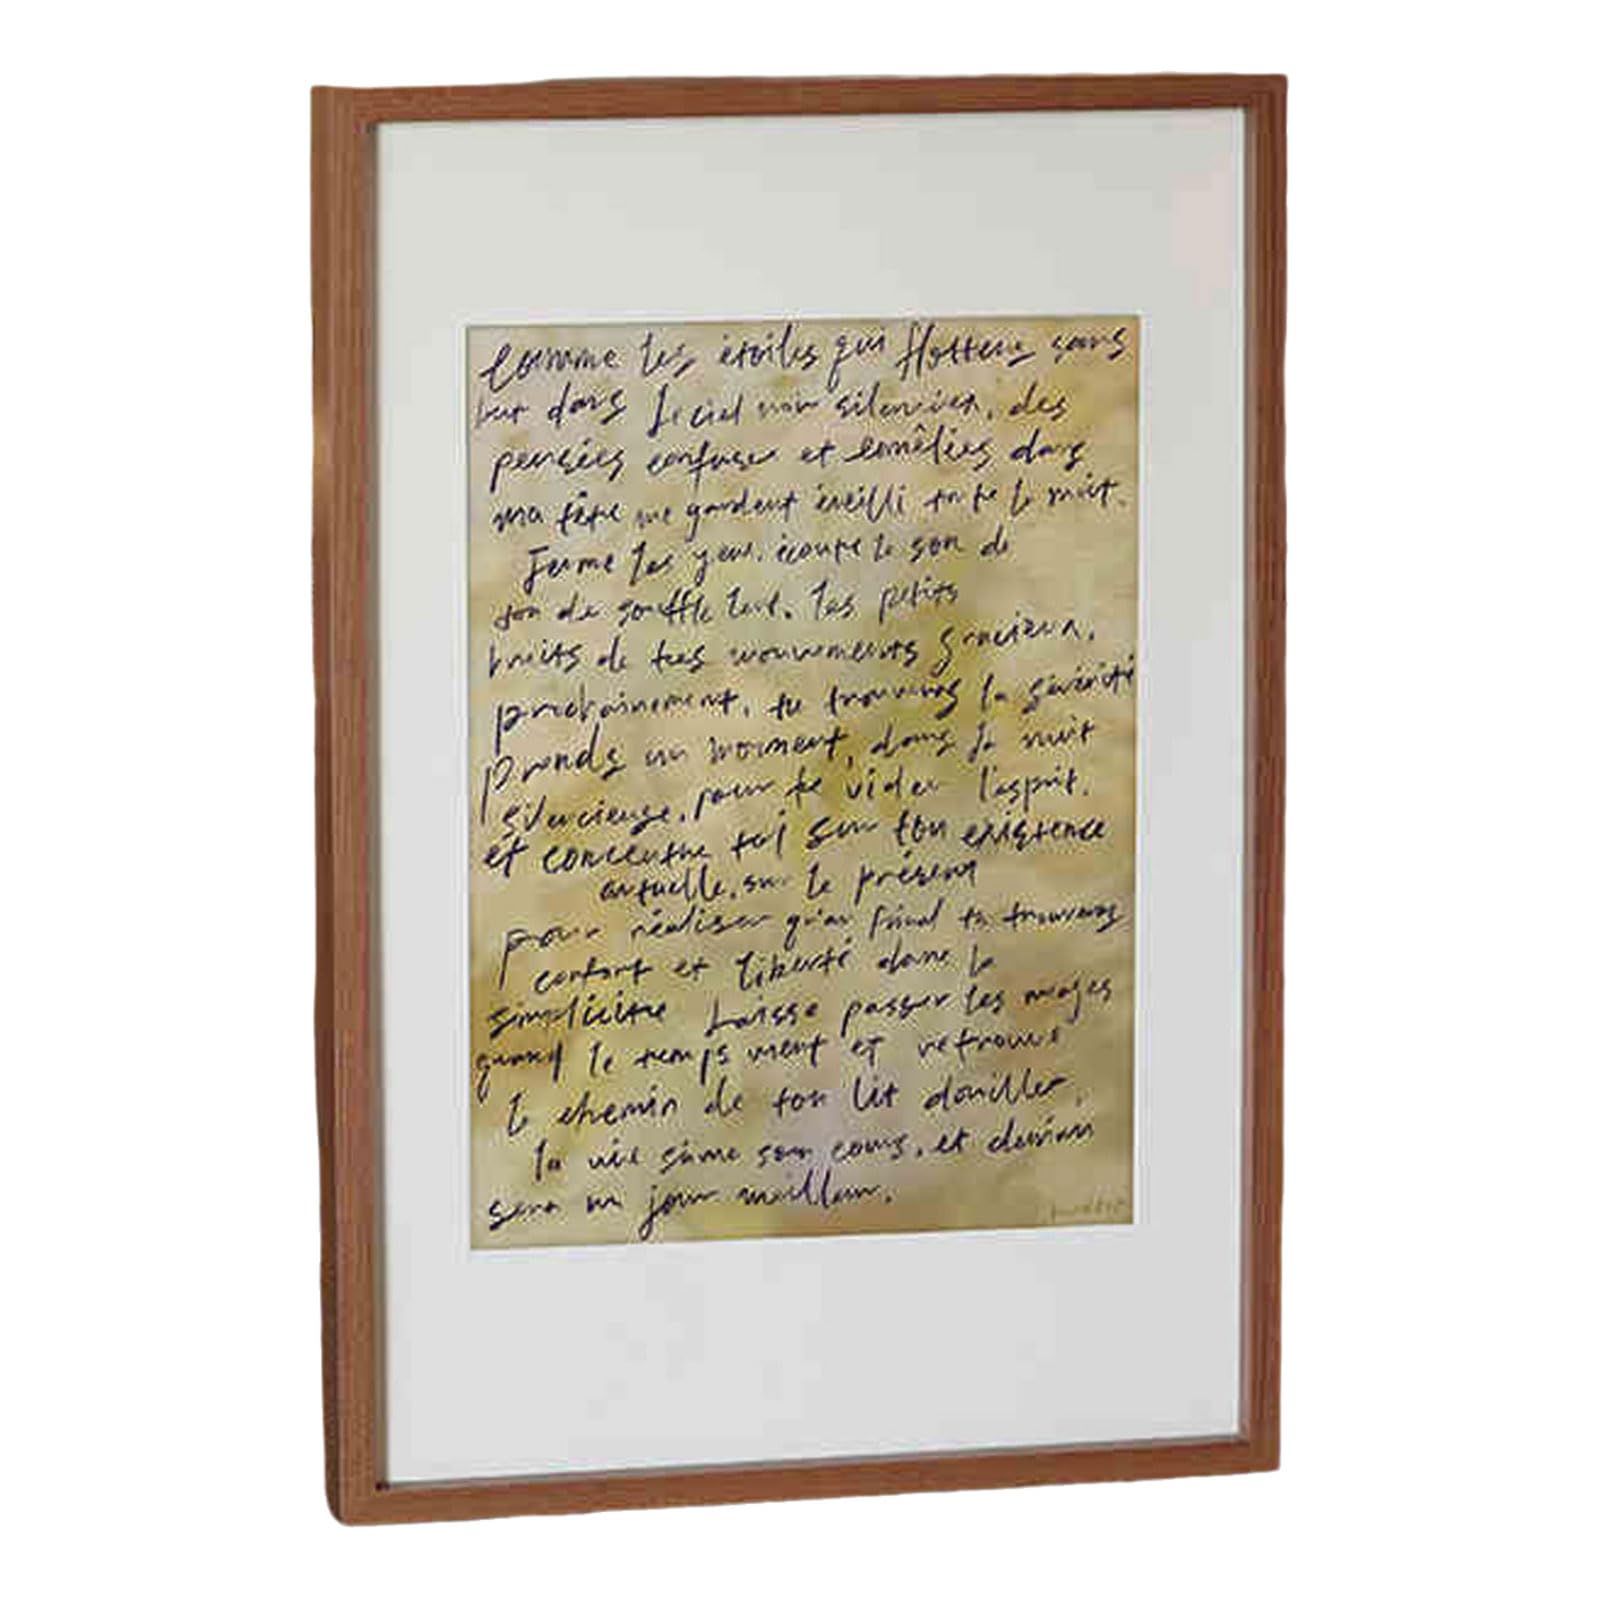 Comme les étoiles qui flottent sans
but dans le ciel noir silencieux, des
pensées confuses et emêlées dans
ma tête me gardent éveillé toute la nuit.
Ferme les yeux, écoute le son de
ton de souffle lent. les petits
bruits de tes mouvements gracieux.
prochainement, tu trouveras la sérénité
prends un moment, dans la nuit
silencieuse, pour te vider l'esprit.
et concentre toi sur ton existence
actuelle, sur le présent
pour réaliser qu'au final tu trouveras
confort et liberté dans la
simplicitre Laisse passer les nuages
quand le temps vient et retrouve
le chemin de ton lit douillet,
la vie sème son cours, et demain
sera un jour meilleur.